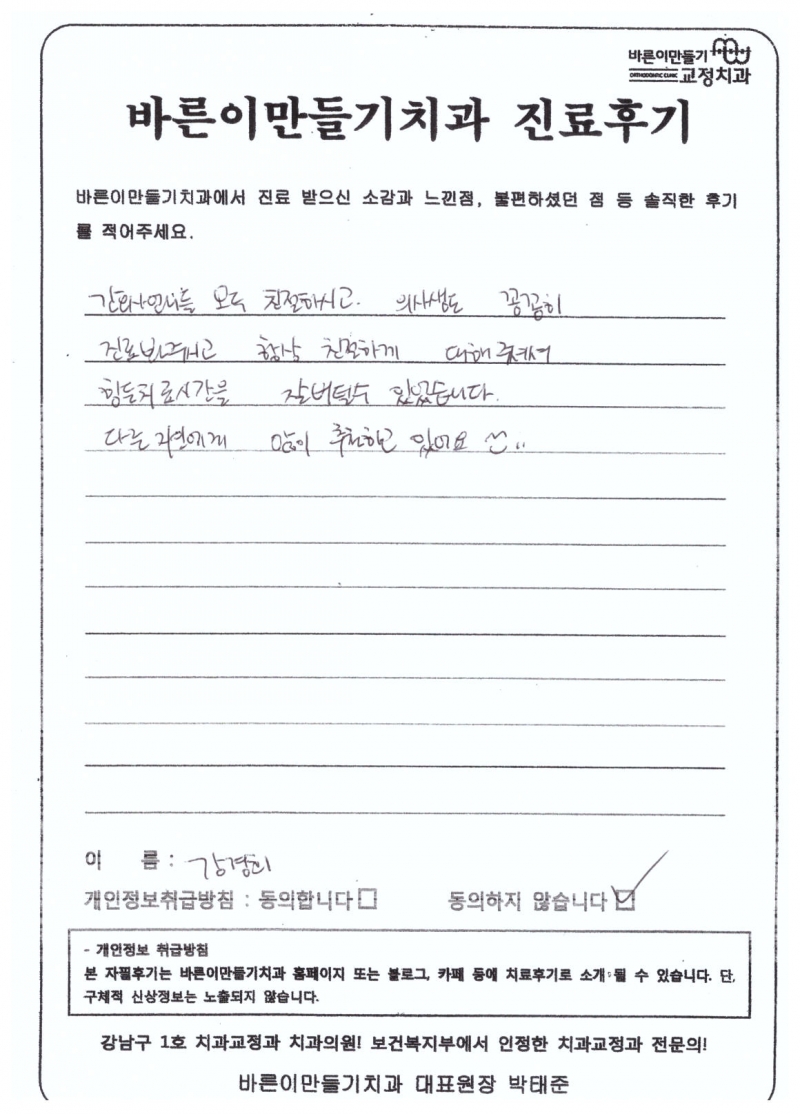 바른이만들기
ORTHODONTIC CLINIC 교정치과
바른이만들기치과 진료후기
바른이만들기치과에서 진료 받으신 소감과 느낀점, 불편하셨던 점 등 솔직한 후기
를 적어주세요.
간호사언니들 모두 친절하시고. 의사생도 꼼꼼히
진료봐주시고 항상 친절하게 대해주셔서
힘든치료시간을 잘버틸수 있었습니다.
다른 지인에게 많이 추천하고 있어요
이 름 : 강경희
개인정보취급방침 : 동의합니다 □ 동의하지 않습니다 ☑
- 개인정보 취급방침
본 자필후기는 바른이만들기치과 홈페이지 또는 블로그, 카페 등에 치료후기로 소개 될 수 있습니다. 단,
구체적 신상정보는 노출되지 않습니다.
강남구 1호 치과교정과 치과의원! 보건복지부에서 인정한 치과교정과 전문의!
바른이만들기치과 대표원장 박태준